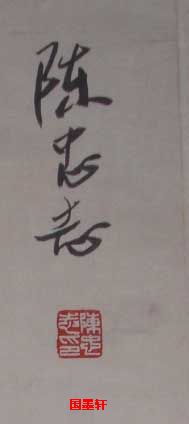 陈忠志
陳忠志印
国墨轩